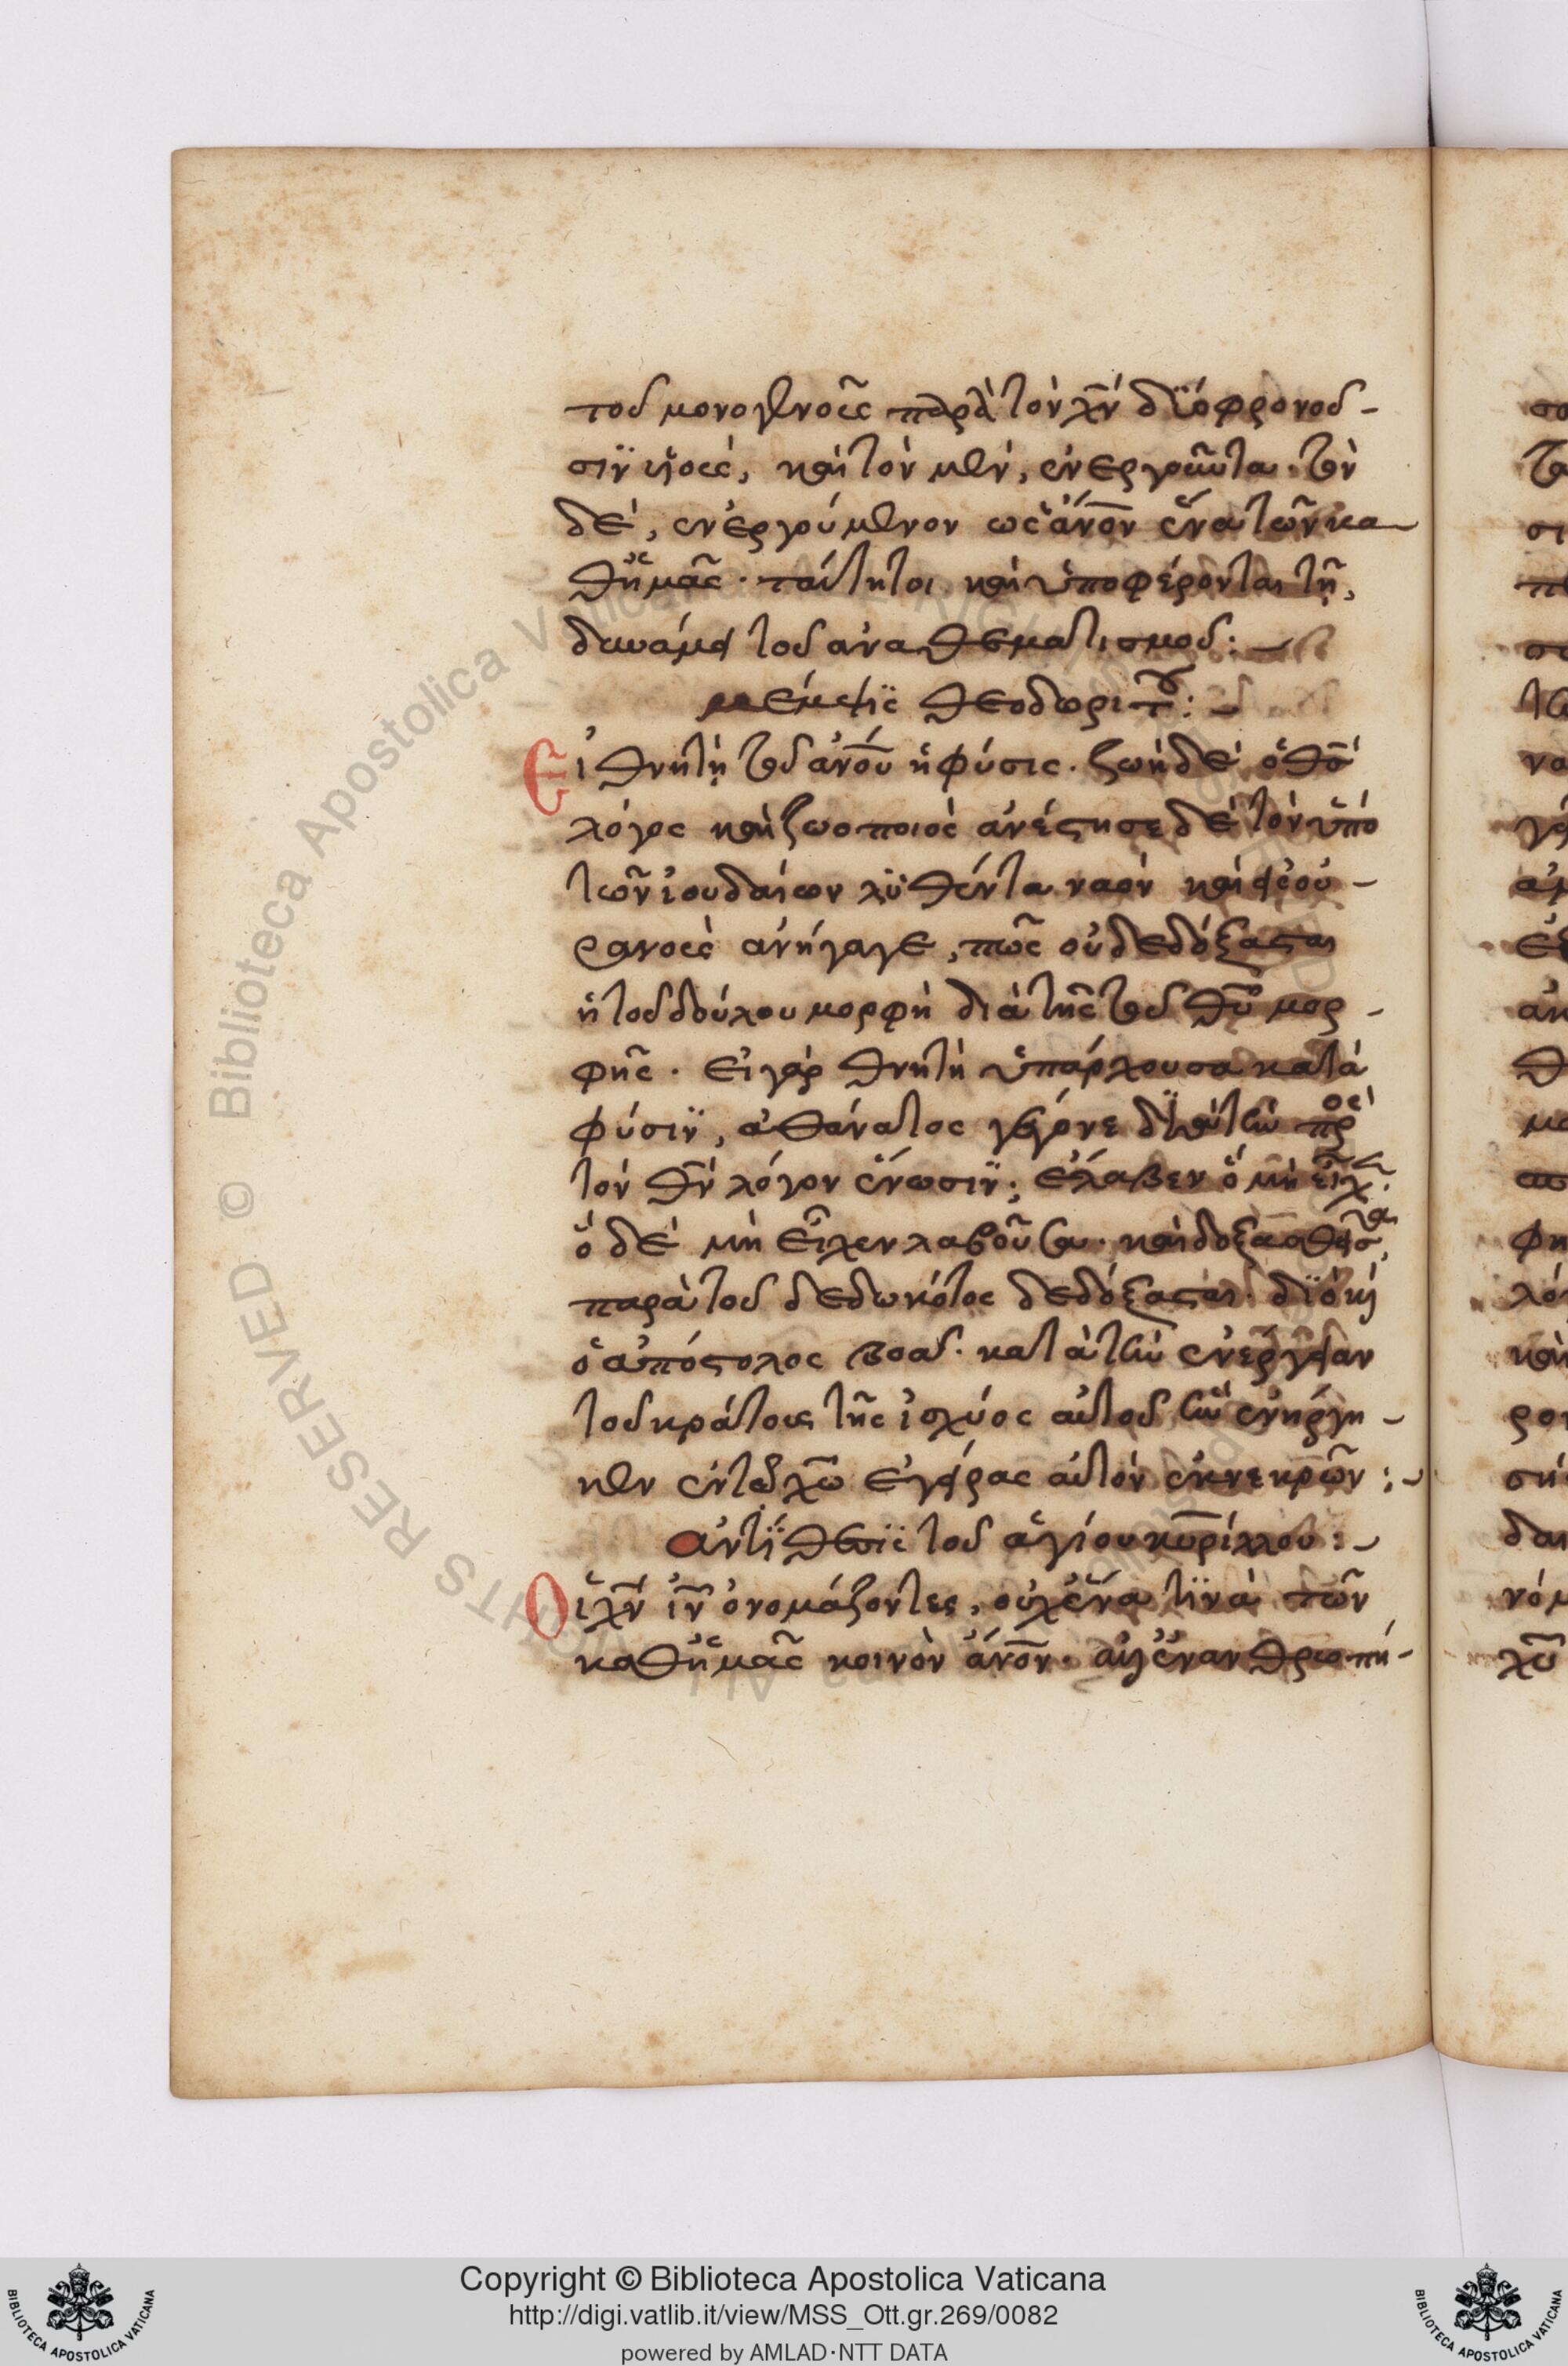 τοῦ μονογενοῦς παρὰ τὸν χν̄ διοφρονοῦ-
σιν υἱοὺς, καὶ τὸν μὲν, ἐνεργοῦντα· τὸν
δὲ, ἐνεργούμενον ὡς ἄνον̄ ἕνα τῶν κα
θ' ἡμᾶς· ταύτητοι καὶ ὑποφέρονται τῆ,
δυνάμει τοῦ ἀναθεματισμοῦ:-
μέμψις θεοδωρίτου:-
Εἰ θνητὴ τοῦ ἀνο̄υ ἡ φύσις· ζωὴ δὲ ὁ θσ̄
λόγος καὶ ζωοποιὸς ἀνέστησε δὲ τὸν ὑπὸ
τῶν ἰουδαίων λυθέντα ναὸν καὶ εἰς οὐ-
ρανοὺς ἀνήγαγε, πῶς οὐ δεδόξασται
ἡ τοῦ δούλου μορφὴ διὰ τῆς τοῦ θῡ μορ-
φῆς· εἰ γὰρ θνητὴ ὑπάρχουσα κατὰ
φύσιν, ἀθάνατος γέγονε διὰ τὴν πρὸς
τὸν θν̄ λόγον ἕνωσιν; ἔλαβεν ὃ μὴ εἶχ.
ὃ δὲ μὴ εἶχεν λαβοῦσα· καὶ δοξασθεῖσα,
παρὰ τοῦ δεδωκότος δεδόξασται· διὸ καὶ
ὁ ἀπόστολος βοᾶ· κατὰ τὴν ἐνέργειαν
τοῦ κράτους τῆς ἰσχύος αὐτοῦ ἣν ἐνήργη-
κεν ἐν τῶ χω̄ ἐγείρας αὐτὸν ἐκ νεκρῶν:-
αντίθεσις τοῦ ἁγίου κυρίλλου:-
Οἱ χν̄ ἰν̄ ὀνομάζοντες, οὐχ ἕνα τινὰ τῶν
καθ' ἡμᾶς κοινὸν ἄνον̄· ἀλλ' ἐνανθρωπή-
Copyright © Biblioteca Apostolica Vaticana
http://digi.vatlib.it/view/MSS_Ott.gr.269/0082
powered by AMLAD·NTT DATA